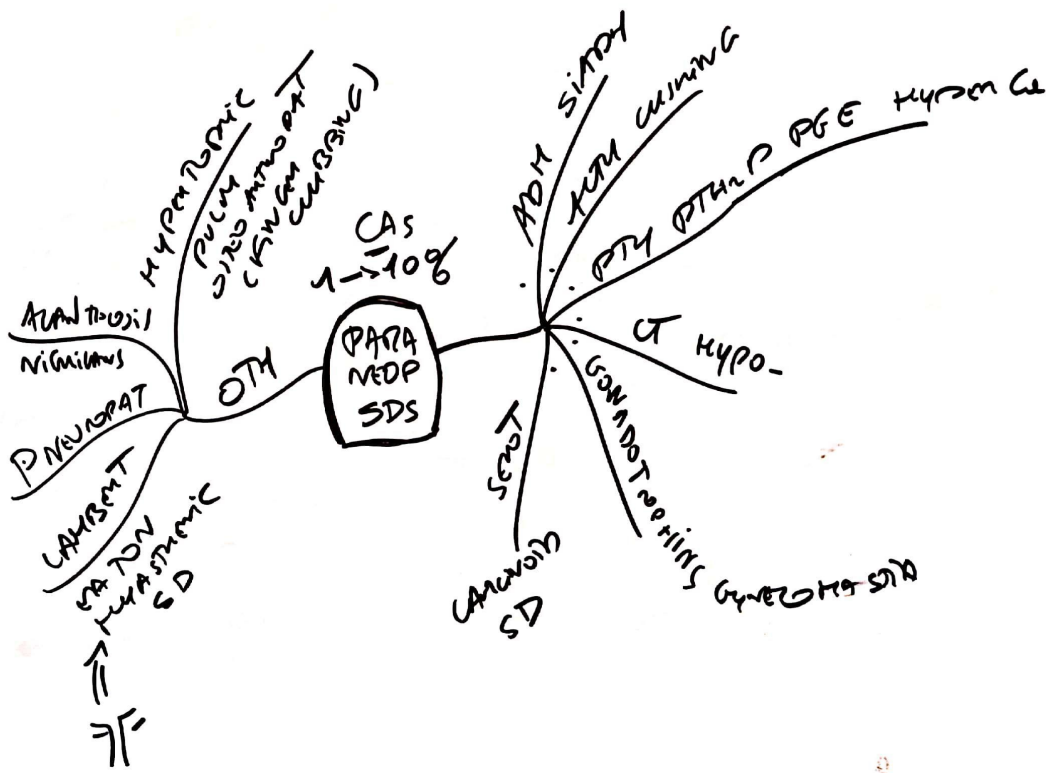 CAs
1 -> 10%
PARA
NEOP
SDS
OTH
HYPERTROPHIC
PULM
OSTEO ARTHROPAT
(FINGER
CLUBBING)
ACANTHOSIS
NIGRICANS
PNEUROPAT
LAMBERT
EATON
MYASTHENIC
SD
ADH SIADH
ACTH CUSHING
PTH PTHrP PGE HYPER Ca
CT HYPO-
GONADOTROPHINS GYNECOMASTIA
SEROT
CARCINOID
SD